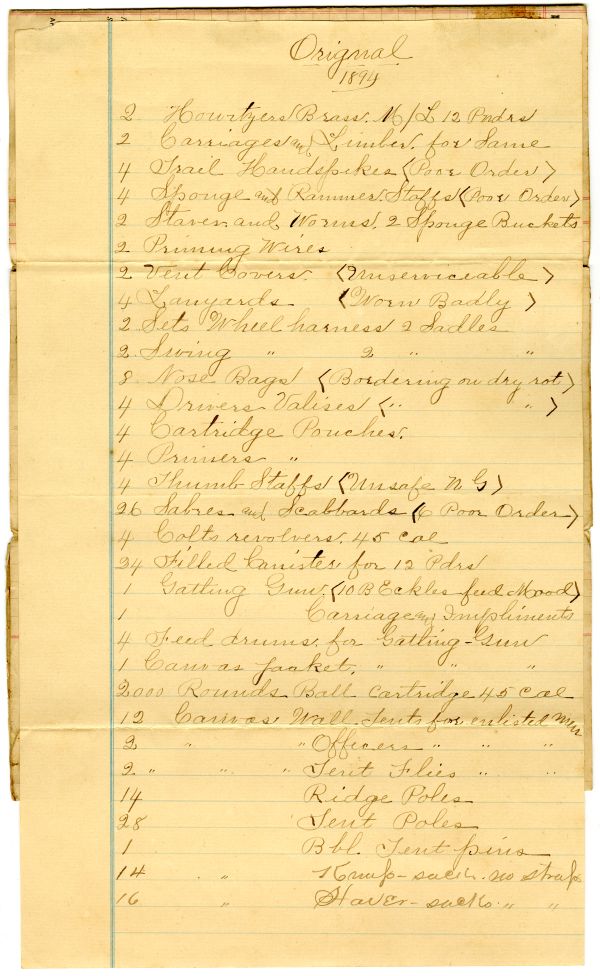 Orignal
1894
2 Howitzers Brass. M/L 12 Pndrs
2 Carriages and Limber. for Same
4 Trail Handspikes <Poor Order>
4 Sponge and Rammer Staffs <Poor Order>
2 Staves and Worms. 2 Sponge Buckets
2 Priming Wires
2 Vent Covers. <Unserviceable>
4 Lanyards <Worn Badly>
2 Sets Wheel harness 2 Sadles
2 Swing " 2 " "
8 Nose Bags <Bordering on dry rot>
4 Drivers Valises <" ">
4 Cartridge Pouches.
4 Primers "
4 Thumb Staffs <Unsafe N G>
26 Sabres and Scabbards <6 Poor Order>
4 Colts revolvers. 45 cal
24 Filled Canister for 12 Pdrs
1 Gatling Gun. <10 B Eckles feed Mood>
1 Carriage and Impliments
4 Feed drums. for Gatling-Gun
1 Canvas Jacket. " " "
2000 Rounds Ball Cartridge 45 Cal
12 Canvas Wall Tents for enlisted men
2 " " Officers " " "
2 " " " Tent Flies " "
14 Ridge Poles
28 Tent Poles
1 Bbl. Tent pins
14 " Knap-sacks. no straps
16 " Haver-sacks " "